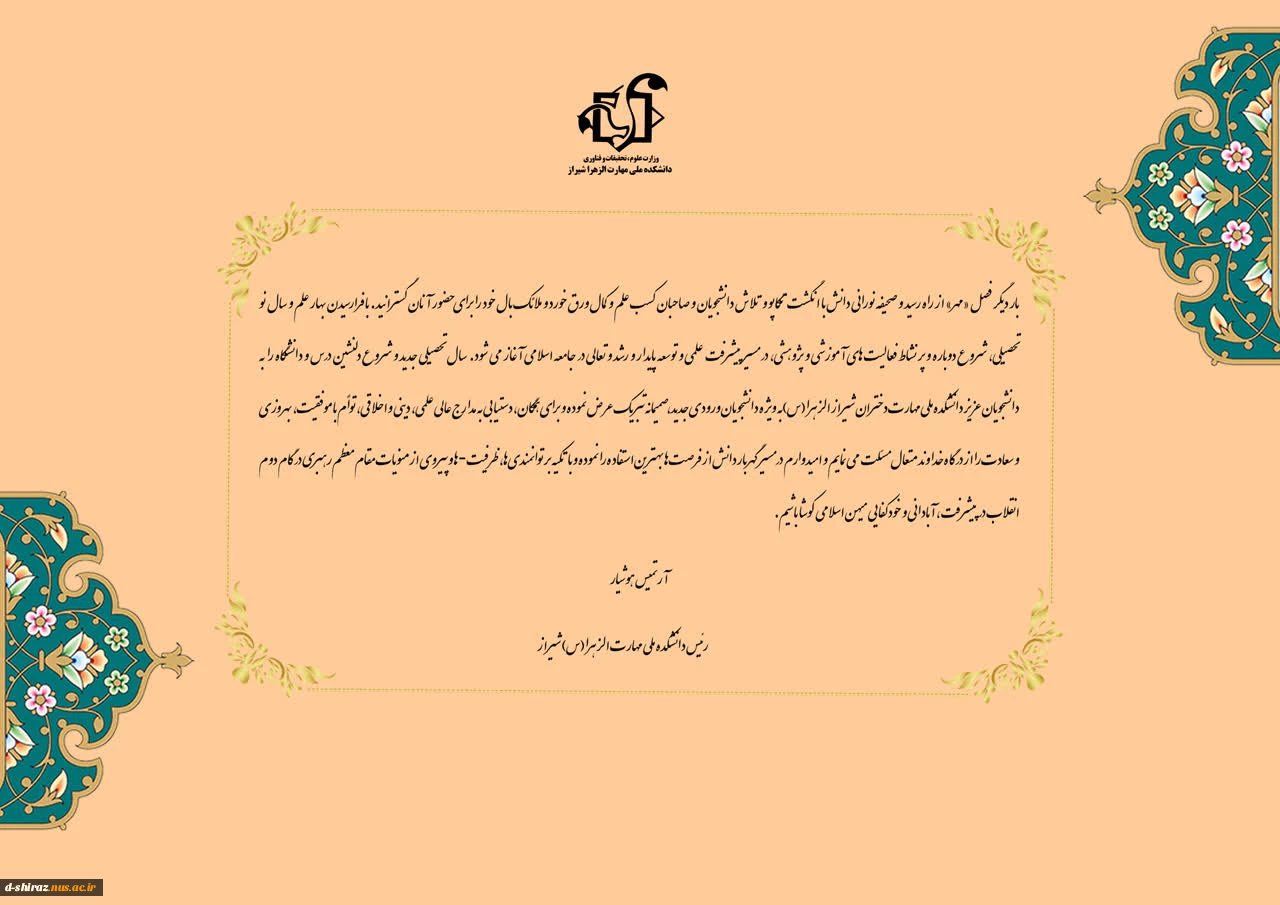 وزارت علوم، تحقیقات و فناوری
دانشکده ملی مهارت الزهرا شیراز
بار دیگر فصل «مهر» از راه رسید و صحیفه نورانی دانش با انگشت تکاپو و تلاش دانشجویان و صاحبان کسب علم و کمال ورق خورد و ملائک بال خود را برای حضور آنان گسترانید. با فرارسیدن بهار علم و سال نو
تحصیلی، شروع دوباره و پر نشاط فعالیت های آموزشی و پژوهشی، در مسیر پیشرفت علمی و توسعه پایدار و رشد و تعالی در جامعه اسلامی آغاز می شود. سال تحصیلی جدید و شروع دلنشین درس و دانشگاه را به
دانشجویان عزیز دانشکده ملی مهارت دختران شیراز الزهرا (س) به ویژه دانشجویان ورودی جدید، صمیمانه تبریک عرض نموده و برای همگان، دستیابی به مدارج عالی علمی، دینی و اخلاقی، توأم با موفقیت، بهروزی
و سعادت را از درگاه خداوند متعال مسئلت می نمایم و امیدوارم در مسیر گهربار دانش از فرصت ها بهترین استفاده را نموده و با تکیه بر توانمندی ها، ظرفیت-ها و پیروی از منویات مقام معظم رهبری در گام دوم
انقلاب در پیشرفت، آبادانی و خودکفایی میهن اسلامی کوشا باشیم.
آرتمیس هوشیار
رئیس دانشکده ملی مهارت الزهرا (س) شیراز
d-shiraz.nus.ac.ir